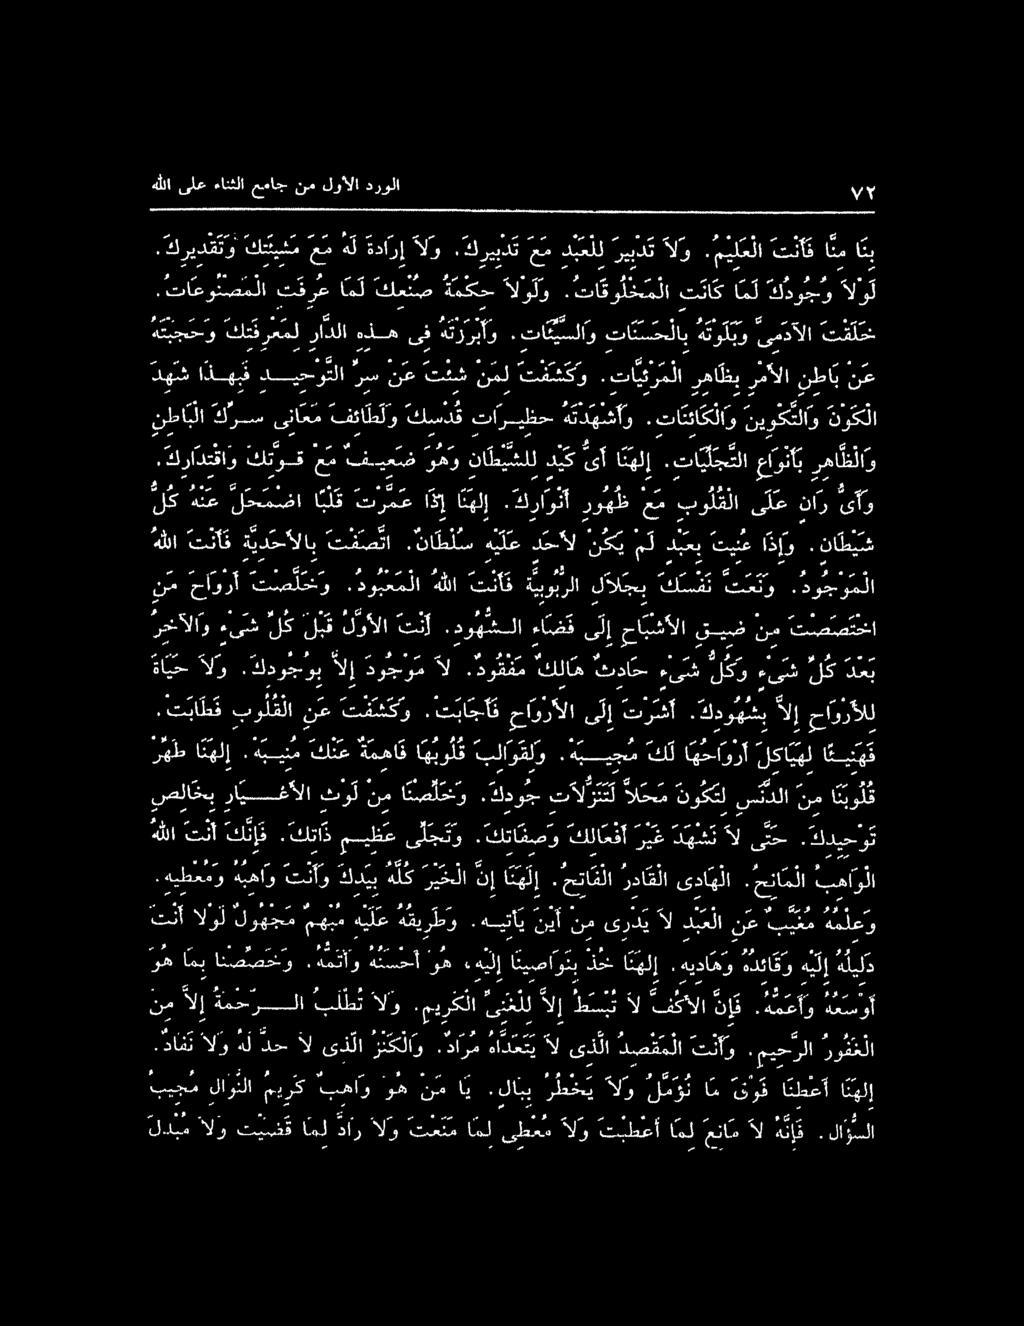 ٧٢
الورد الأول من جامع الثناء على الله
بِنَا مِنَّا فَأَنْتَ الْعَلِيمُ. وَلاَ تَدْبِيرَ لِلْعَبْدِ مَعَ تَدْبِيرِكَ. وَلاَ إِرَادَةَ لَهُ مَعَ مَشِيئَتِكَ وَتَقْدِيرِكَ.
لَوْلاَ وُجُودُكَ لَمَا كَانَتِ الْمَخْلُوقَاتُ. وَلَوْلاَ حِكْمَةُ صُنْعِكَ لَمَا عُرِفَتِ الْمَصْنُوعَاتُ.
خَلَقْتَ الآدَمِىَّ وَبَلَوْتَهُ بِالْحَسَنَاتِ وَالسَّيِّئَاتِ. وَأَبْرَزْتَهُ فِى هَـذِهِ الدَّارِ لِمَعْرِفَتِكَ وَحَجَبْتَهُ
عَنْ بَاطِنِ الأَمْرِ بِظَاهِرِ الْمَرْئِيَّاتِ. وَكَشَفْتَ لِمَنْ شِئْتَ عَنْ سِرِّ التَّوْحِيـدِ فَبِهَـذَا شَهِدَ
الْكَوْنَ وَالتَّكْوِينَ وَالْكَائِنَاتِ. وَأَشْهَدْتَهُ حَظِيـرَاتِ قُدْسِكَ وَلَطَائِفَ مَعَانِى سِـرِّكَ الْبَاطِنِ
وَالْظَّاهِرِ بِأَنْوَاعِ التَّجَلِّيَاتِ. إِلهَنَا أَىُّ كَيْدٍ لِلشَّيْطَانِ وَهُوَ ضَعِيـفٌ مَعَ قُـوَّتِكَ وَاقْتِدَارِكَ.
وَأَىُّ رَانٍ عَلَى الْقُلُوبِ مَعَ ظُهُورِ أَنْوَارِكَ. إِلهَنَا إِذَا عَمَّرْتَ قَلْبًا اضْمَحَلَّ عَنْهُ كُلُّ
شَيْطَانٍ. وَإِذَا عُنِيتَ بِعَبْدٍ لَمْ يَكُنْ لأَحَدٍ عَلَيْهِ سُلْطَانٌ. اتَّصَفْتَ بِالأَحَدِيَّةِ فَأَنْتَ اللهُ
الْمَوْجُودُ. وَنَعَتَّ نَفْسَكَ بِجَلاَلِ الرُّبُوبِيَّةِ فَأَنْتَ اللهُ الْمَعْبُودُ. وَخَلَّصْتَ أَرْوَاحَ مَنِ
اخْتَصَصْتَ مِنْ ضِيـقِ الأَشْبَاحِ إِلَى فَضَاءِ الـشُّهُودِ. أَنْتَ الأَوَّلُ قَبْلَ كُلِّ شَىْءٍ وَالآخِرُ
بَعْدَ كُلِّ شَىْءٍ وَكُلُّ شَىْءٍ حَادِثٌ هَالِكٌ مَفْقُودٌ. لاَ مَوْجُودَ إِلاَّ بِوُجُودِكَ. وَلاَ حَيَاةَ
لِلأَرْوَاحِ إِلاَّ بِشُهُودِكَ. أَشَرْتَ إِلَى الأَرْوَاحِ فَأَجَابَتْ. وَكَشَفْتَ عَنِ الْقُلُوبِ فَطَابَتْ.
فَهَنِيـئًا لِهَيَاكِلَ أَرْوَاحُهَا لَكَ مُجِيـبَةٌ. وَلِقَوَالِبَ قُلُوبُهَا فَاهِمَةٌ عَنْكَ مُنِيـبَةٌ. إِلهَنَا طَهِّرْ
قُلُوبَنَا مِنَ الدَّنَسِ لِتَكُونَ مَحَلاًّ لِتَنَزُّلاَتِ جُودِكَ. وَخَلِّصْنَا مِنْ لَوْثِ الأَغْـيَارِ بِخَالِصِ
تَوْحِيدِكَ. حَتَّى لاَ نَشْهَدَ غَيْرَ أَفْعَالِكَ وَصِفَاتِكَ. وَتَجَلِّى عَظِيـمِ ذَاتِكَ. فَإِنَّكَ أَنْتَ اللهُ
الْوَاهِبُ الْمَانِحُ. الْهَادِى الْقَادِرُ الْفَاتِحُ. إِلَهَنَا إِنَّ الْخَيْرَ كُلَّهُ بِيَدِكَ وَأَنْتَ وَاهِبُهُ وَمُعْطِيهِ.
وَعِلْمُهُ مُغَيَّبٌ عَنِ الْعَبْدِ لاَ يَدْرِى مِنْ أَيْنَ يَأْتِيـهِ. وَطَرِيقُهُ عَلَيْهِ مُبْهَمٌ مَجْهُولٌ لَوْلاَ أَنْتَ
دَلِيلُهُ إِلَيْهِ وَقَائِدُهُ وَهَادِيهِ. إِلهَنَا خُذْ بِنَوَاصِينَا إِلَيْهِ، هُوَ أَحْسَنُهُ وَأَتَمُّهُ. وَخَصِّصْنَا بِمَا هُوَ
أَوْسَعُهُ وَأَعَمُّهُ. فَإِنَّ الأَكُفَّ لاَ تُبْسَطُ إِلاَّ لِلْغَنِىِّ الْكَرِيمِ. وَلاَ تُطْلَبُ الـرَّحْمَةُ إِلاَّ مِنَ
الْغَفُورِ الرَّحِيمِ. وَأَنْتَ الْمَقْصِدُ الَّذِى لاَ يَتَعَدَّاهُ مُرَادٌ. وَالْكَنْزُ الَّذِى لاَ حَدَّ لَهُ وَلاَ نَفَادٌ.
إِلهَنَا أَعْطِنَا فَوْقَ مَا نُؤَمِّلُ وَلاَ يَخْطُرُ بِبَالٍ. يَا مَنْ هُوَ وَاهِبٌ كَرِيمُ النَّوَالِ مُجِيبُ
السُّؤَالِ. فَإِنَّهُ لاَ مَانِعَ لِمَا أَعْطَيْتَ وَلاَ مُعْطِىَ لِمَا مَنَعْتَ وَلاَ رَادَّ لِمَا قَضَيْتَ وَلاَ مُبْدِلَ